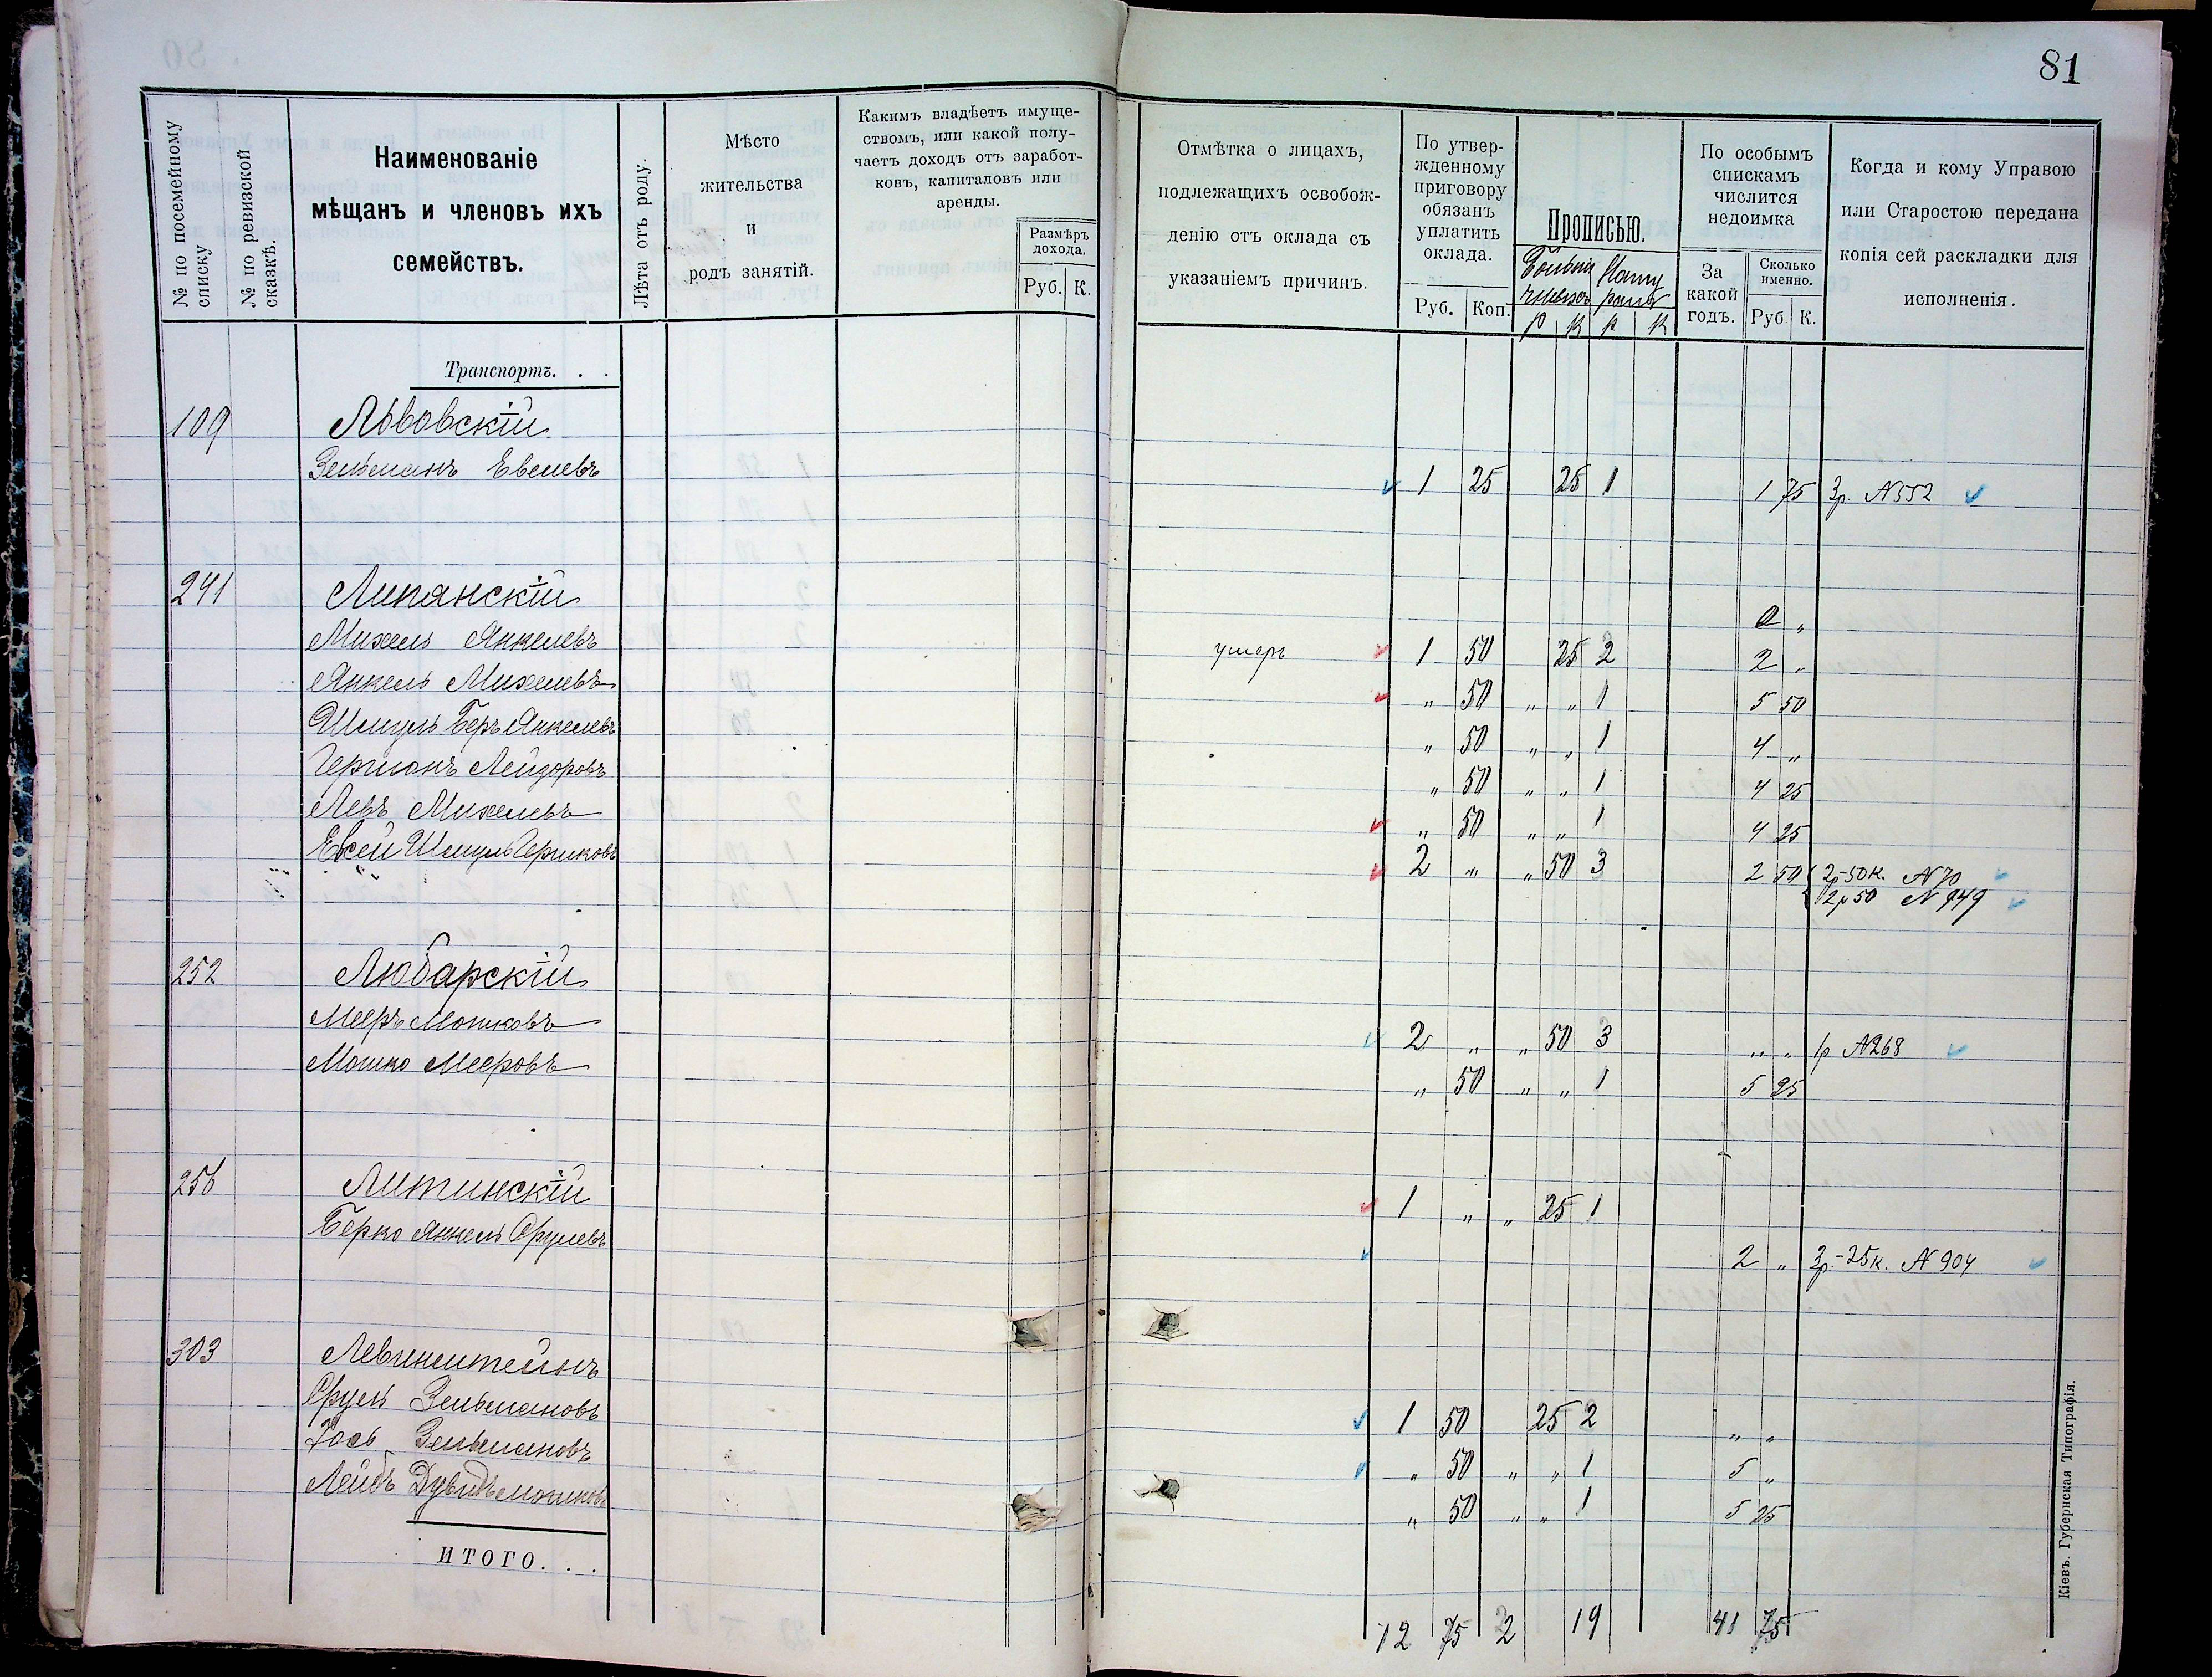 81
№ по посемейному списку
№ по ревизской сказкѣ.
Наименованіе
мѣщанъ и членовъ ихъ
семействъ.
Лѣта отъ роду.
Мѣсто
жительства
и
родъ занятій.
Какимъ владѣетъ имуще-
ствомъ, или какой полу-
чаетъ доходъ отъ заработ-
ковъ, капиталовъ или
аренды.
Размѣръ
дохода.
Руб. К.
Отмѣтка о лицахъ,
подлежащихъ освобож-
денію отъ оклада съ
указаніемъ причинъ.
По утвер-
жденному
приговору
обязанъ
уплатить
оклада.
Руб. Коп.
Прописью.
р к р к
По особымъ
спискамъ
числится
недоимка
За
какой
годъ.
Сколько
именно.
Руб. К.
Когда и кому Управою
или Старостою передана
копія сей раскладки для
исполненія.
Транспортъ. . .
109 Львовскій
Зельманъ Евелевъ 1 25 25 1 1 75 3р. N 552
241 Липянскій
0 "
Михель Янкелевъ умеръ 1 50 25 2 2 "
Янкель Михелевъ " 50 " " 1 5 50
Шмуль Беръ Янкелевъ " 50 " " 1 4 "
Германъ Лейзоровъ " 50 " " 1 4 25
Левъ Михелевъ " 50 " " 1 4 25
Евсей Шмуль Гершковъ 2 " " 50 3 2 50 2р-50к. N 70
2р 50 N 949
252 Любарскій
Мееръ Мошковъ 2 " " 50 3 " " 1р N 268
Мошко Мееровъ " 50 " " 1 5 25
256 Литинскій
1 " " 25 1
Берко Янкель Срулевъ 2 " 3р.-25к. N 904
303 Левинштейнъ
Сруль Зельмановъ 1 50 25 2 " "
Іось Зельмановъ " 50 " " 1 5 "
Лейбъ Дувидъ Мошковъ " 50 " " 1 5 25
ИТОГО. . .
12 75 2 19 41 75
Кіевъ. Губернская Типографія.